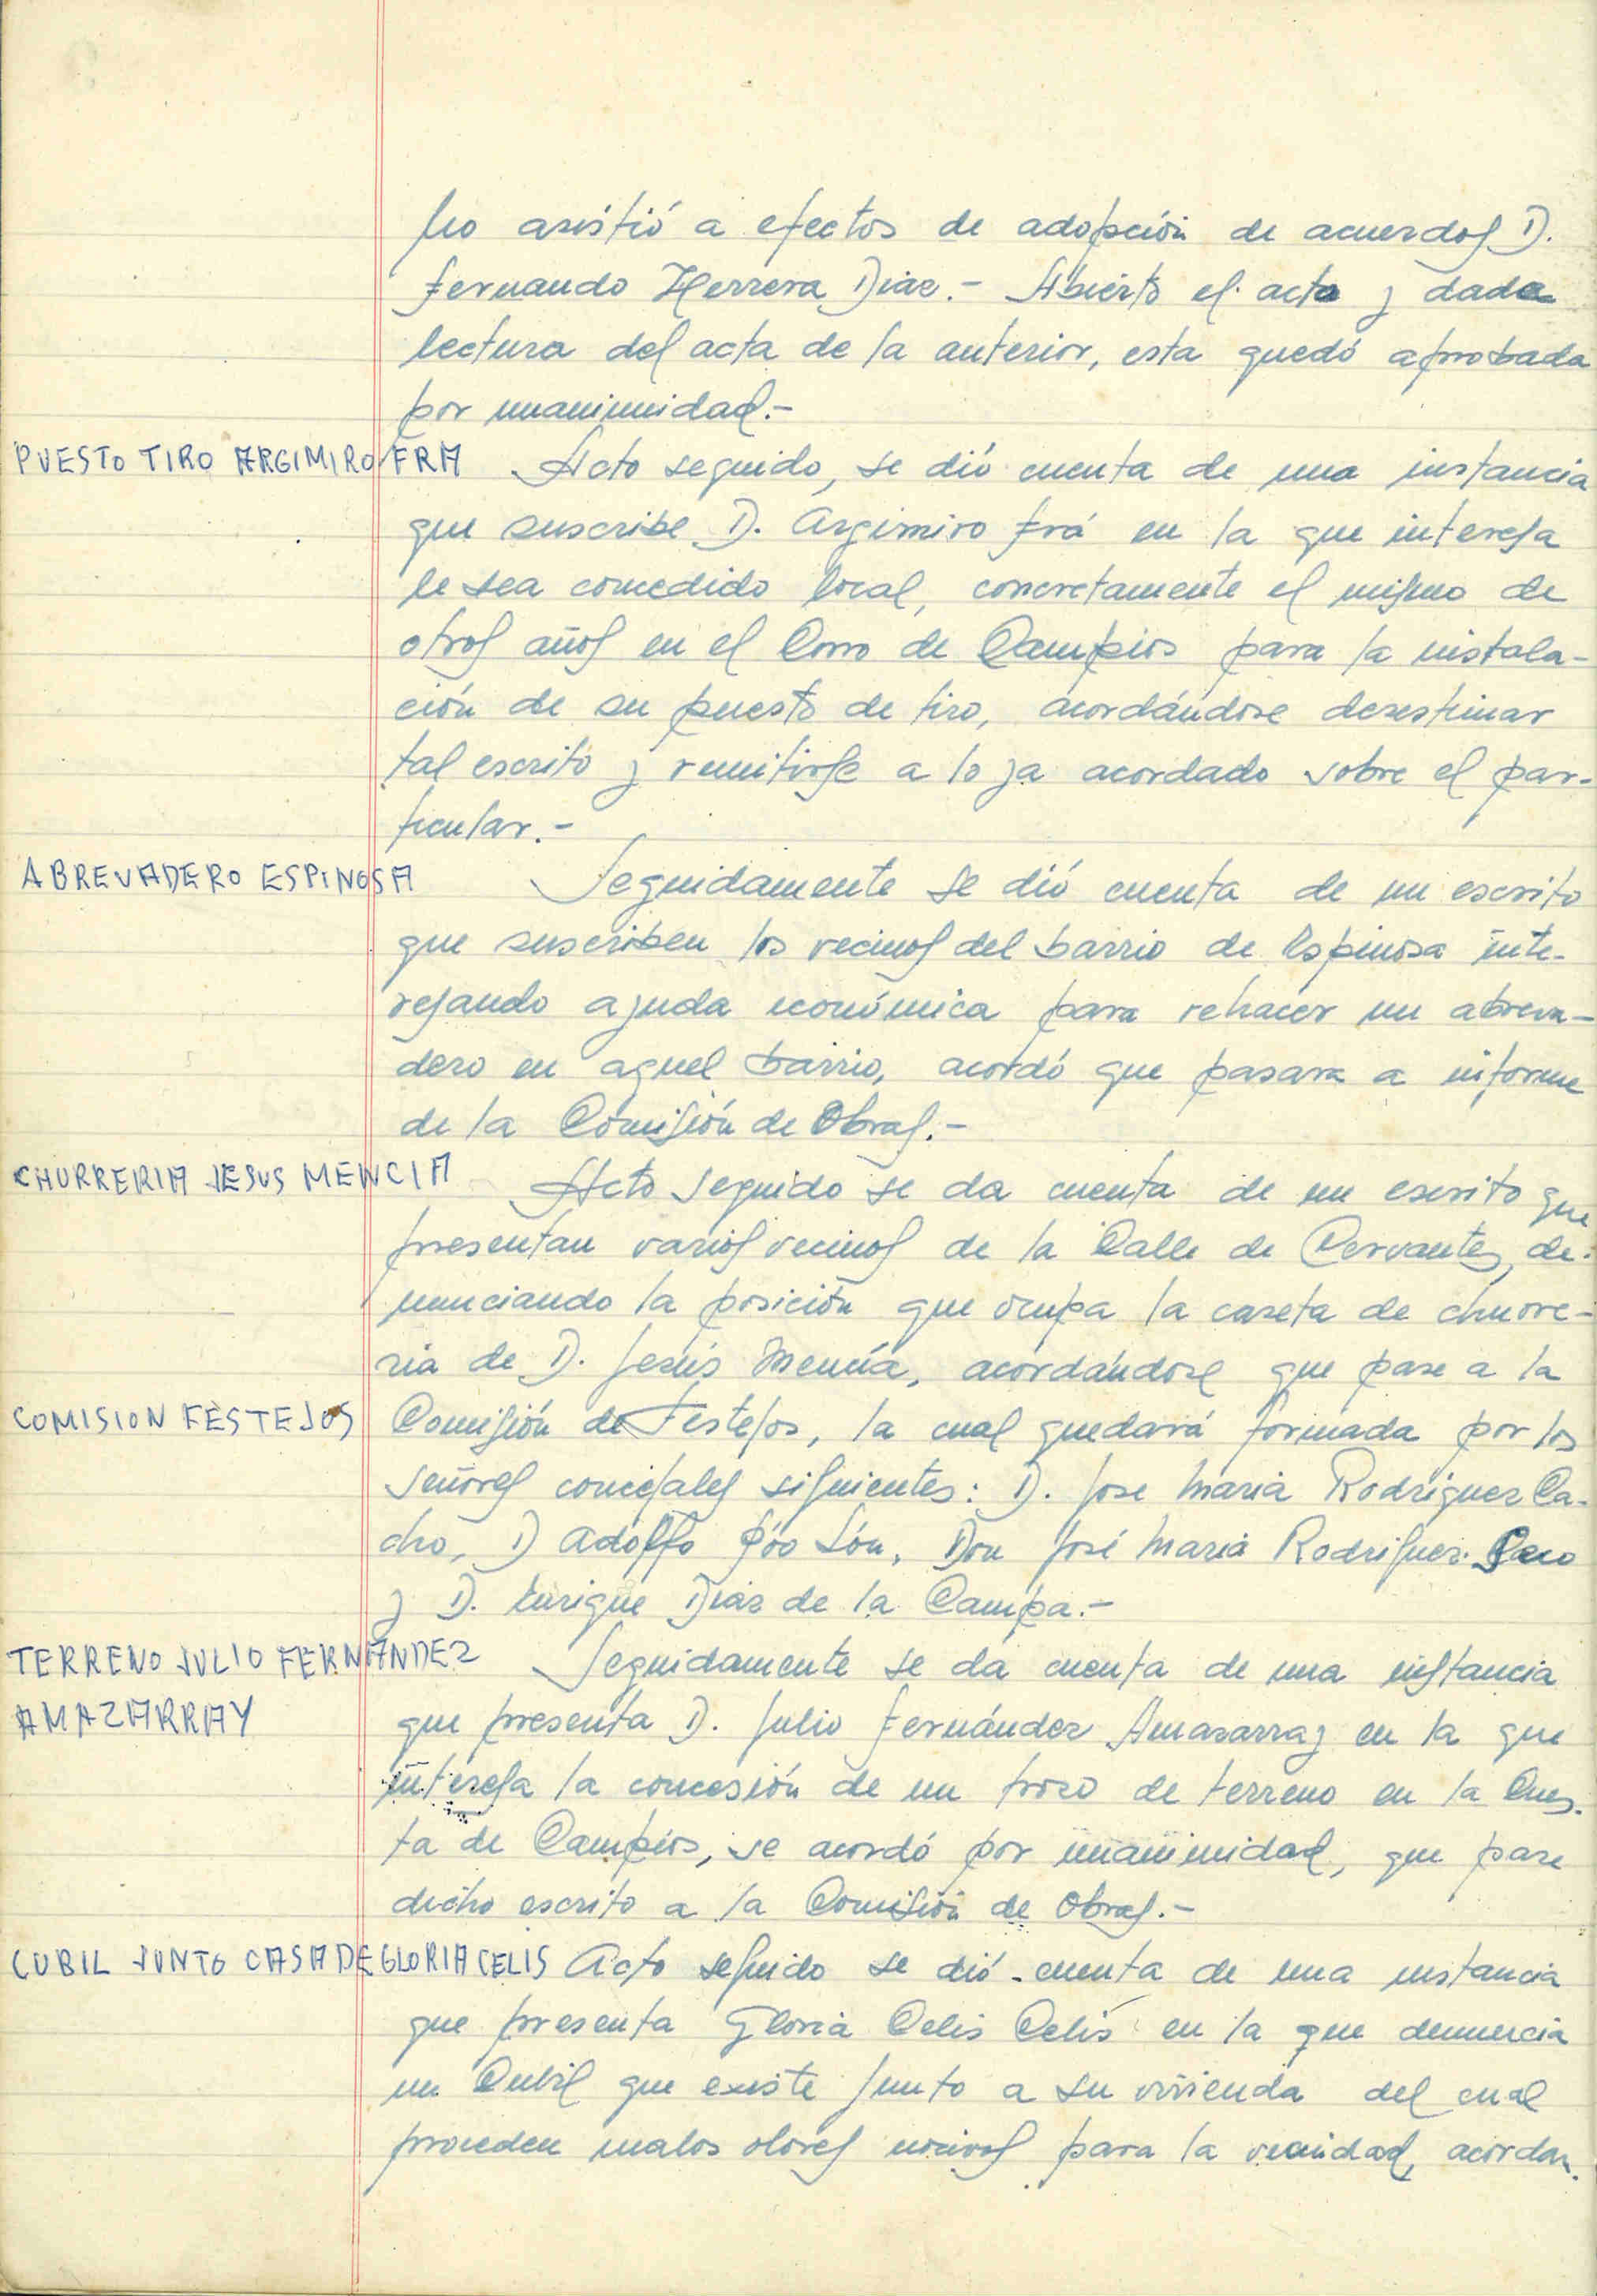 No asistió a efectos de adopción de acuerdos D.
Fernando Herrera Diaz.- Abierto el acto y dada
lectura del acta de la anterior, esta quedó aprobada
por unanimidad.-
PUESTO TIRO ARGIMIRO FRA Acto seguido, se dió cuenta de una instancia
que suscribe D. Argimiro Frá en la que interesa
le sea concedido local, concretamente el mismo de
otros años en el Corro de Campios para la instala-
ción de su puesto de tiro, acordándose desestimar
tal escrito y remitirse a lo ya acordado sobre el par-
ticular.-
ABREVADERO ESPINOSA Seguidamente se dió cuenta de un escrito
que suscriben los vecinos del barrio de Espinosa inte-
resando ayuda económica para rehacer un abreva-
dero en aquel barrio, acordó que pasara a informe
de la Comisión de Obras.-
CHURRERIA JESUS MENCIA Acto seguido se da cuenta de un escrito que
presentan varios vecinos de la Calle de Cervantes, de-
nunciando la posición que ocupa la caseta de churre-
ria de D. Jesús Mencía, acordándose que pase a la
COMISION FESTEJOS Comisión de Festejos, la cual quedará formada por los
señores concejales siguientes: D. Jose Maria Rodriguez Ca-
cho, D Adolfo Póo Són, Don José Maria Rodriguez
y D. Enrique Diaz de la Campa.-
TERRENO JULIO FERNANDEZ Seguidamente se da cuenta de una instancia
AMAZARRAY que presenta D. Julio Fernández Amazarray en la que
interesa la concesión de un trozo de terreno en la Cues-
ta de Campios, se acordó por unanimidad, que pase
dicho escrito a la Comisión de Obras.-
CUBIL JUNTO CASA DE GLORIA CELIS Acto seguido se dió cuenta de una instancia
que presenta Gloria Celis Celis en la que denuncia
un Cubil que existe junto a su vivienda del cual
proceden malos olores nocivos para la vecindad, acordan-